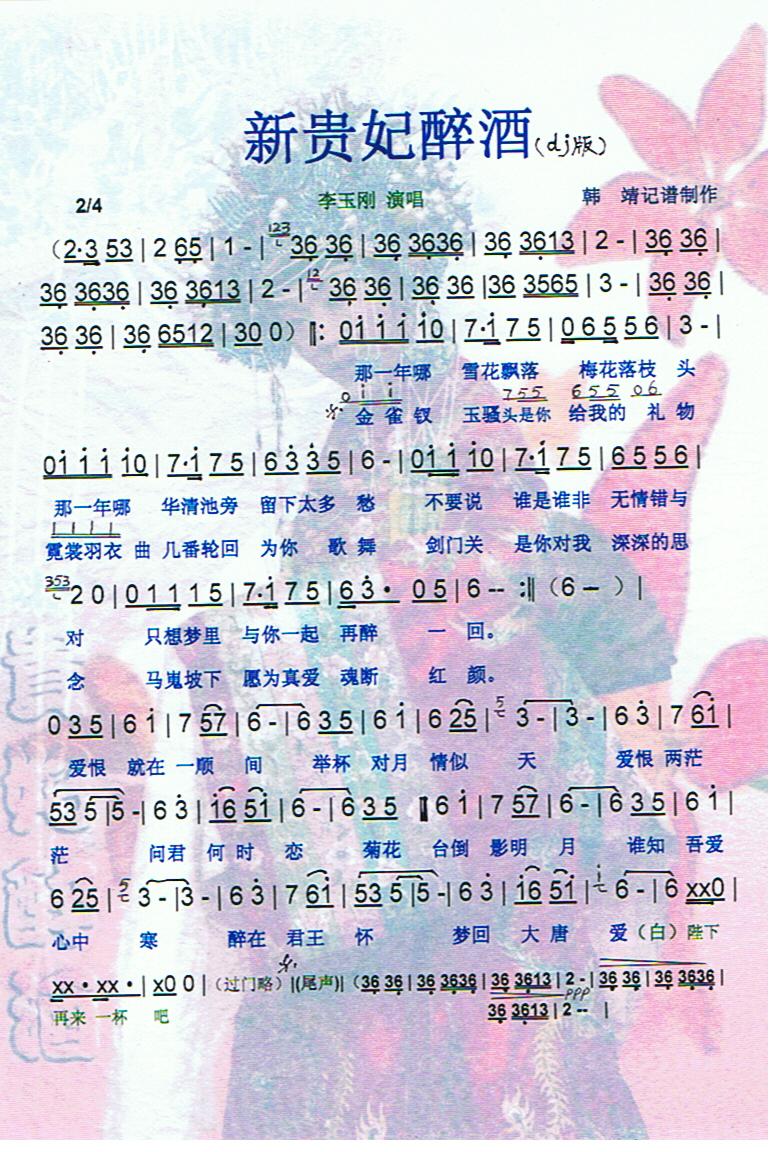 新贵妃醉酒(dj版)
2/4 李玉刚 演唱 韩 靖记谱制作
(2·3 53 | 2 65 | 1 - | 123 36 36 | 36 3636 | 36 3613 | 2 - | 36 36 |
36 3636 | 36 3613 | 2 - | 12 36 36 | 36 36 | 36 3565 | 3 - | 36 36 |
36 36 | 36 6512 | 30 0) ‖: 0i i i i0 | 7·i 7 5 | 0 6 5 5 6 | 3 - |
那一年哪 雪花飘落 梅花落枝 头
0 i i 755 655 06
金 雀 钗 玉骚头是你 给我的 礼 物
0i i i i0 | 7·i 7 5 | 6 3 3 5 | 6 - | 0i i i0 | 7·i 7 5 | 6 5 5 6 |
那一年哪 华清池旁 留下太多 愁 不要说 谁是谁非 无情错与
霓裳羽衣 曲 几番轮回 为你 歌 舞 剑门关 是你对我 深深的思
353 2 0 | 0 1 1 1 5 | 7·i 7 5 | 6 3· 0 5 | 6 -- :‖ (6 — ) |
对 只想梦里 与你一起 再醉 一 回。
念 马嵬坡下 愿为真爱 魂断 红 颜。
0 3 5 | 6 i | 7 57 | 6 - | 6 3 5 | 6 i | 6 25 | 5 3 - | 3 - | 6 3 | 7 6i |
爱恨 就在 一顺 间 举杯 对月 情似 天 爱恨 两茫
53 5 | 5 - | 6 3 | i6 5i | 6 - | 6 3 5 ‖ 6 i | 7 57 | 6 - | 6 3 5 | 6 i |
茫 问君 何 时 恋 菊花 台倒 影明 月 谁知 吾爱
6 25 | 5 3 - | 3 - | 6 3 | 7 6i | 53 5 | 5 - | 6 3 | i6 5i | i 6 - | 6 xx0 |
心中 寒 醉在 君王 怀 梦回 大 唐 爱 (白) 陛下
xx · xx · | x0 0 | (过门略) | (尾声) | (36 36 | 36 3636 | 36 3613 | 2 - | 36 36 | 36 3636 |
再来 一杯 吧 ppp 36 3613 | 2 -- |